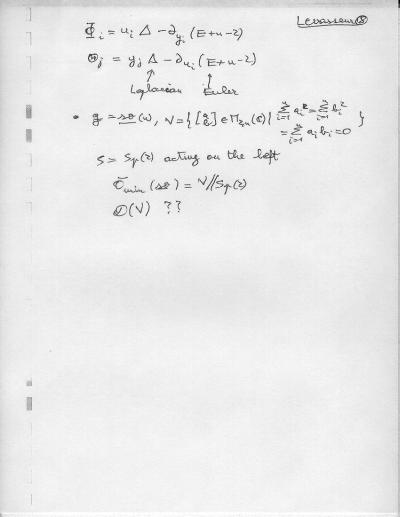 Levasseur ⑧
Φ_i = u_i Δ − ∂_{y_i} (E+n−2)
Θ_j = y_j Δ − ∂_{u_j} (E+n−2)
Laplacian Euler
• g = so(n), V = { [a b] ∈ M_{2,n}(C) { Σ_{i=1}^n a_i^2 = Σ_{i=1}^n b_i^2
= Σ_{i=1}^n a_i b_i = 0 }
S = Sp(2) acting on the left
Ō_min (so) = V//Sp(2)
D(V) ??